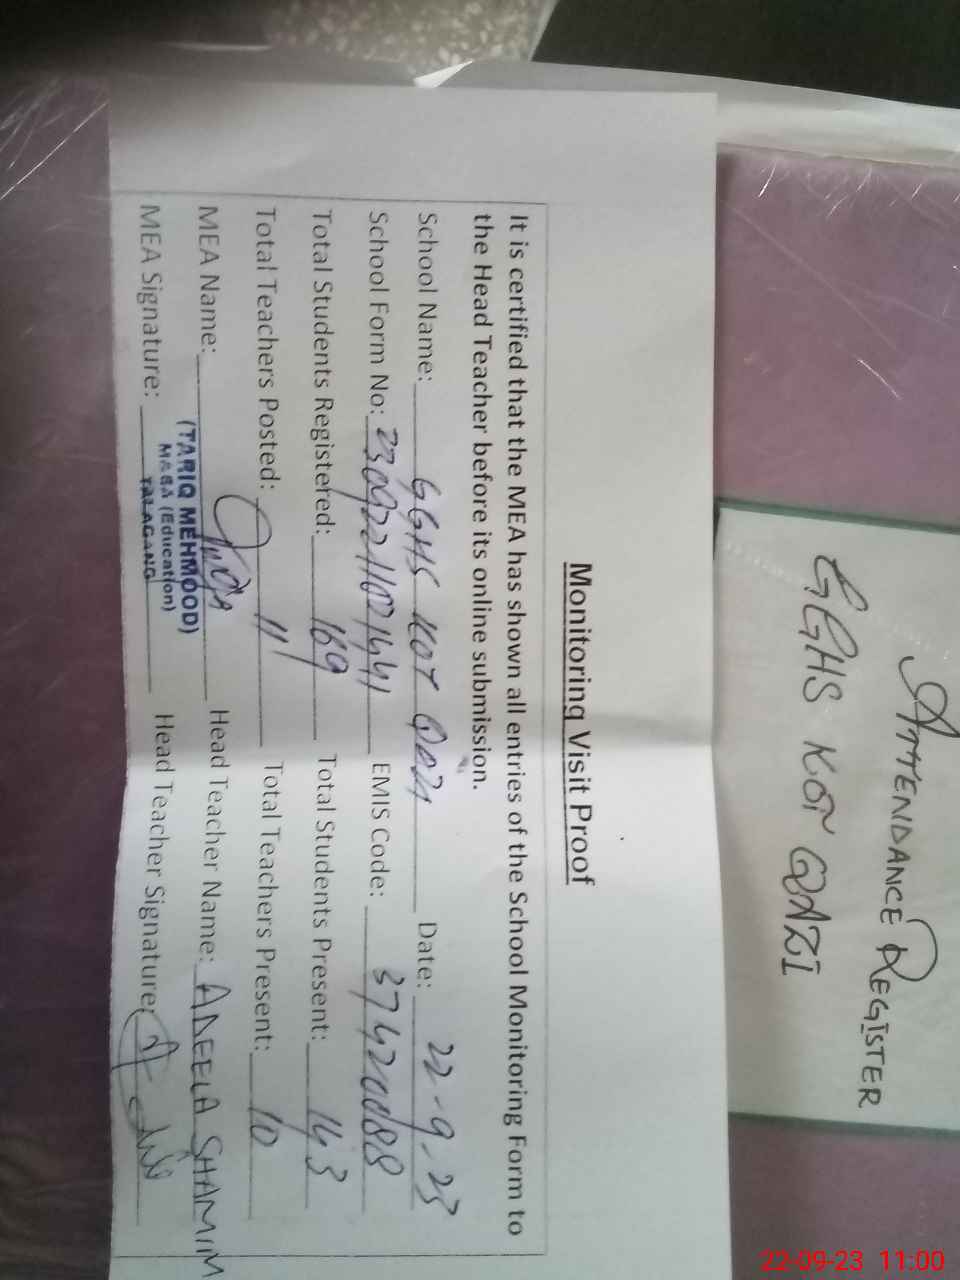 ATTENDANCE REGISTER
GGHS KOT QAZI
Monitoring Visit Proof
It is certified that the MEA has shown all entries of the School Monitoring Form to
the Head Teacher before its online submission.
School Name: GGHS KOT Qazi Date: 22-9-23
School Form No: EMIS Code:
Total Students Registered: 169 Total Students Present: 143
Total Teachers Posted: 11 Total Teachers Present: 10
MEA Name: Head Teacher Name: ADEELA SHAMIM
(TARIQ MEHMOOD)
MEA (Education)
TALAGANG
MEA Signature: Head Teacher Signature:
22-09-23 11:00